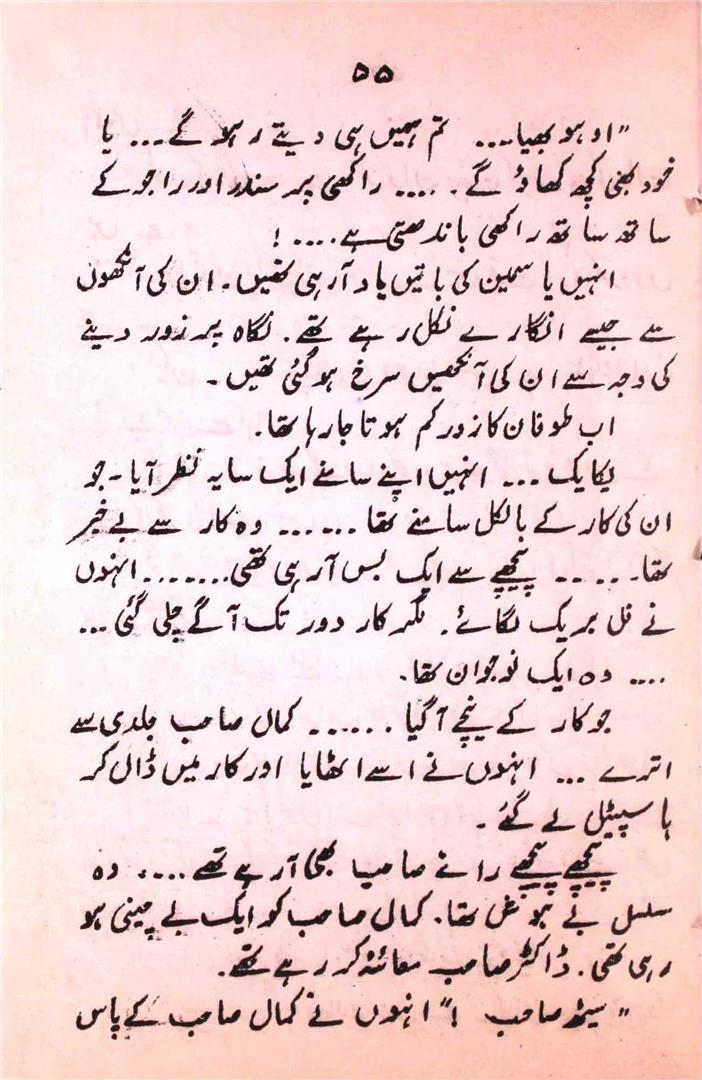 ۵۵
"اوہو بھیا.... تم ہمیں ہی دیتے رہو گے... یا
خود بھی کچھ کھاؤ گے. .... راکھی پر سندر اور راجو کے
ساتھ ساتھ راکھی باندھتی ہے....!
انہیں یاسمین کی باتیں یاد آرہی تھیں۔ ان کی آنکھوں
سے جیسے انگارے نکل رہے تھے۔ نگاہ پر زور دینے
کی وجہ سے ان کی آنکھیں سرخ ہو گئی تھیں۔
اب طوفان کا زور کم ہوتا جا رہا تھا۔
یکایک ... انہیں اپنے سامنے ایک سایہ نظر آیا۔ جو
ان کی کار کے بالکل سامنے تھا ...... وہ کار سے بے خبر
تھا..... پیچھے سے ایک بس آرہی تھی....... انہوں
نے فل بریک لگائے۔ مگر کار دور تک آگے چلی گئی ...
.... وہ ایک نوجوان تھا۔
جو کار کے نیچے آگیا ...... کمال صاحب جلدی سے
اترے ... انہوں نے اسے اٹھایا اور کار میں ڈال کر
ہاسپیٹل لے گئے۔
پیچھے پیچھے رانے صاحب بھی آرہے تھے.... وہ
مسلسل بے ہوش تھا۔ کمال صاحب کو ایک بے چینی ہو
رہی تھی۔ ڈاکٹر صاحب معائنہ کر رہے تھے۔
"سیٹھ صاحب !" انہوں نے کمال صاحب کے پاس